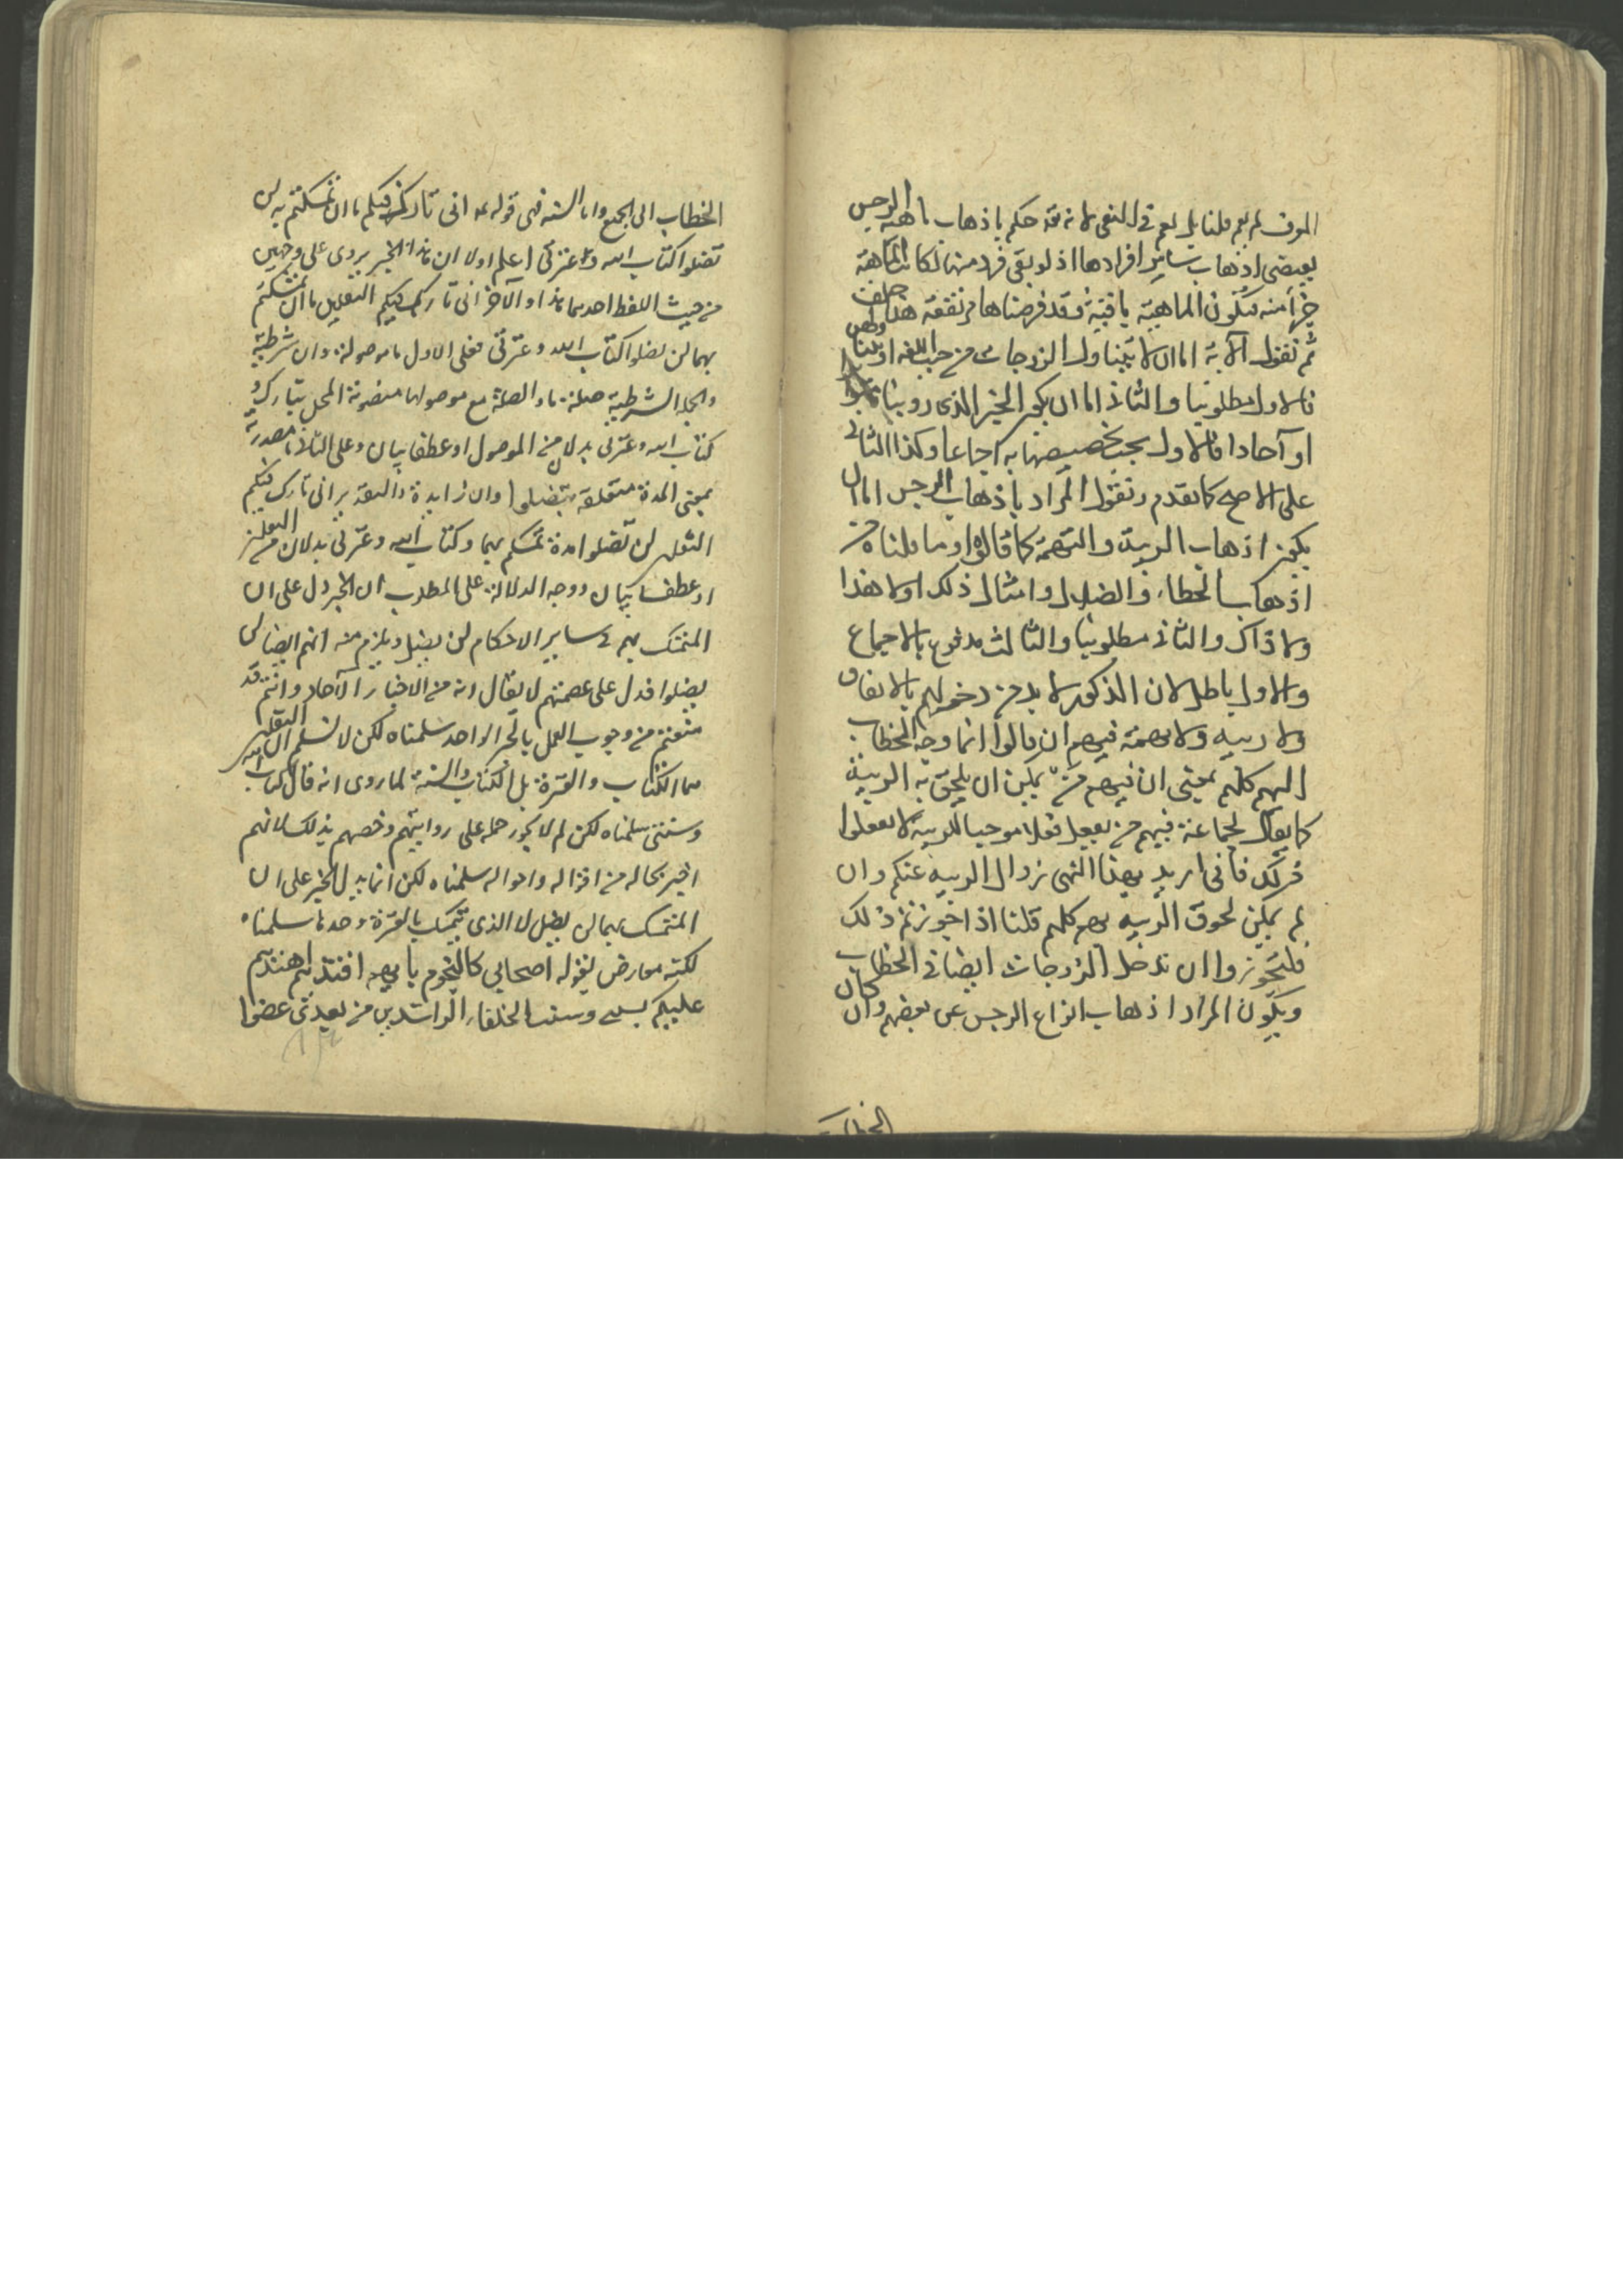 المعرف لم يعم قلنا بل يعم في النفي لانه قد حكم باذهاب ماهية الرجس
يقتضي اذهاب ساير افرادها اذ لو بقي فرد منها لكانت الماهية
جزأ منه فتكون الماهية باقية وقد فرضناها مرتفعة هذا خلف
ثم نقول الآية اما ان لا تتناول الزوجات من حيث اللغة او تتناولهن
فالاول مطلوبنا والثاني اما ان يكون الخبر الذي رويناه متواترا
او آحادا فالاول يجب تخصيصها به اجماعا وكذا الثاني
على الاصح كما تقدم ونقول المراد باذهاب الرجس اما ان
يكون اذهاب الريبة والتهمة كما قالوه او ما قلناه من
اذهاب الخطاء والضلال وامثال ذلك اولا هذا
ولا ذاك والثاني مطلوبنا والثالث مدفوع بالاجماع
والاول باطل لان الذكور لا بد من دخولهم بالاتفاق
ولا ريبه ولا تهمة فيهم ان قالوا انما وجه الخطاب
اليهم كلهم بمعنى ان فيهم من يمكن ان يلحق به الريبة
كما يقال لجماعة فيهم من يفعل فعلا موجبا للريبة لا تفعلوا
ذلك فاني اريد بهذا النهي زوال الريبة عنكم وان
لم يمكن لحوق الريبه بهم كلهم قلنا اذا جوزتم ذلك
فلتجوزوا ان تدخل الزوجات ايضا في الخطاب
ويكون المراد اذهاب انواع الرجس عن بعضهم وان كان
الخطاب
الخطاب الى الجميع واما السنة فهي قوله عه اني تارك فيكم ما ان تمسكتم به لن
تضلوا كتاب الله وعترتي اعلم اولا ان هذا الخبر يروى على وجهين
من حيث اللفظ احدهما هذا والآخر اني تارك فيكم الثقلين ما ان تمسكتم
بهما لن تضلوا كتاب الله وعترتي فعلى الاول ما موصولة وان شرطية
والجملة الشرطية صلة ما والصلة مع موصولها منصوبة المحل بتارك و
كتاب الله وعترتي بدلان من الموصول او عطف بيان وعلى الثاني ما مصدرية
بمعنى المدة متعلقة بتضلوا وان زايدة والتقدير اني تارك فيكم
الثقلين لن تضلوا مدة تمسككم بهما وكتاب الله وعترتي بدلان من الثقلين
او عطف بيان ووجه الدلالة على المطلوب ان الخبر دل على ان
المتمسك بهم في ساير الاحكام لن يضل ويلزم منه انهم ايضا لن
يضلوا فدل على عصمتهم لا يقال انه من الاخبار الآحاد وانتم قد
منعتم من وجوب العمل بالخبر الواحد سلمناه لكن لا نسلم ان الثقلين
هما الكتاب والعترة بل الكتاب والسنة لما روى انه قال كتاب الله
وسنتي سلمناه لكن لم لا يجوز حمله على روايتهم وخصهم بذلك لانهم
اخبر بحاله من اقواله واحواله سلمناه لكن انما يدل الخبر على ان
المتمسك بهما لن يضل لا الذي يتمسك بالعترة وحدها سلمناه
لكنه معارض بقوله اصحابي كالنجوم بايهم اقتديتم اهتديتم
عليكم بسنتي وسنة الخلفاء الراشدين من بعدي عضوا